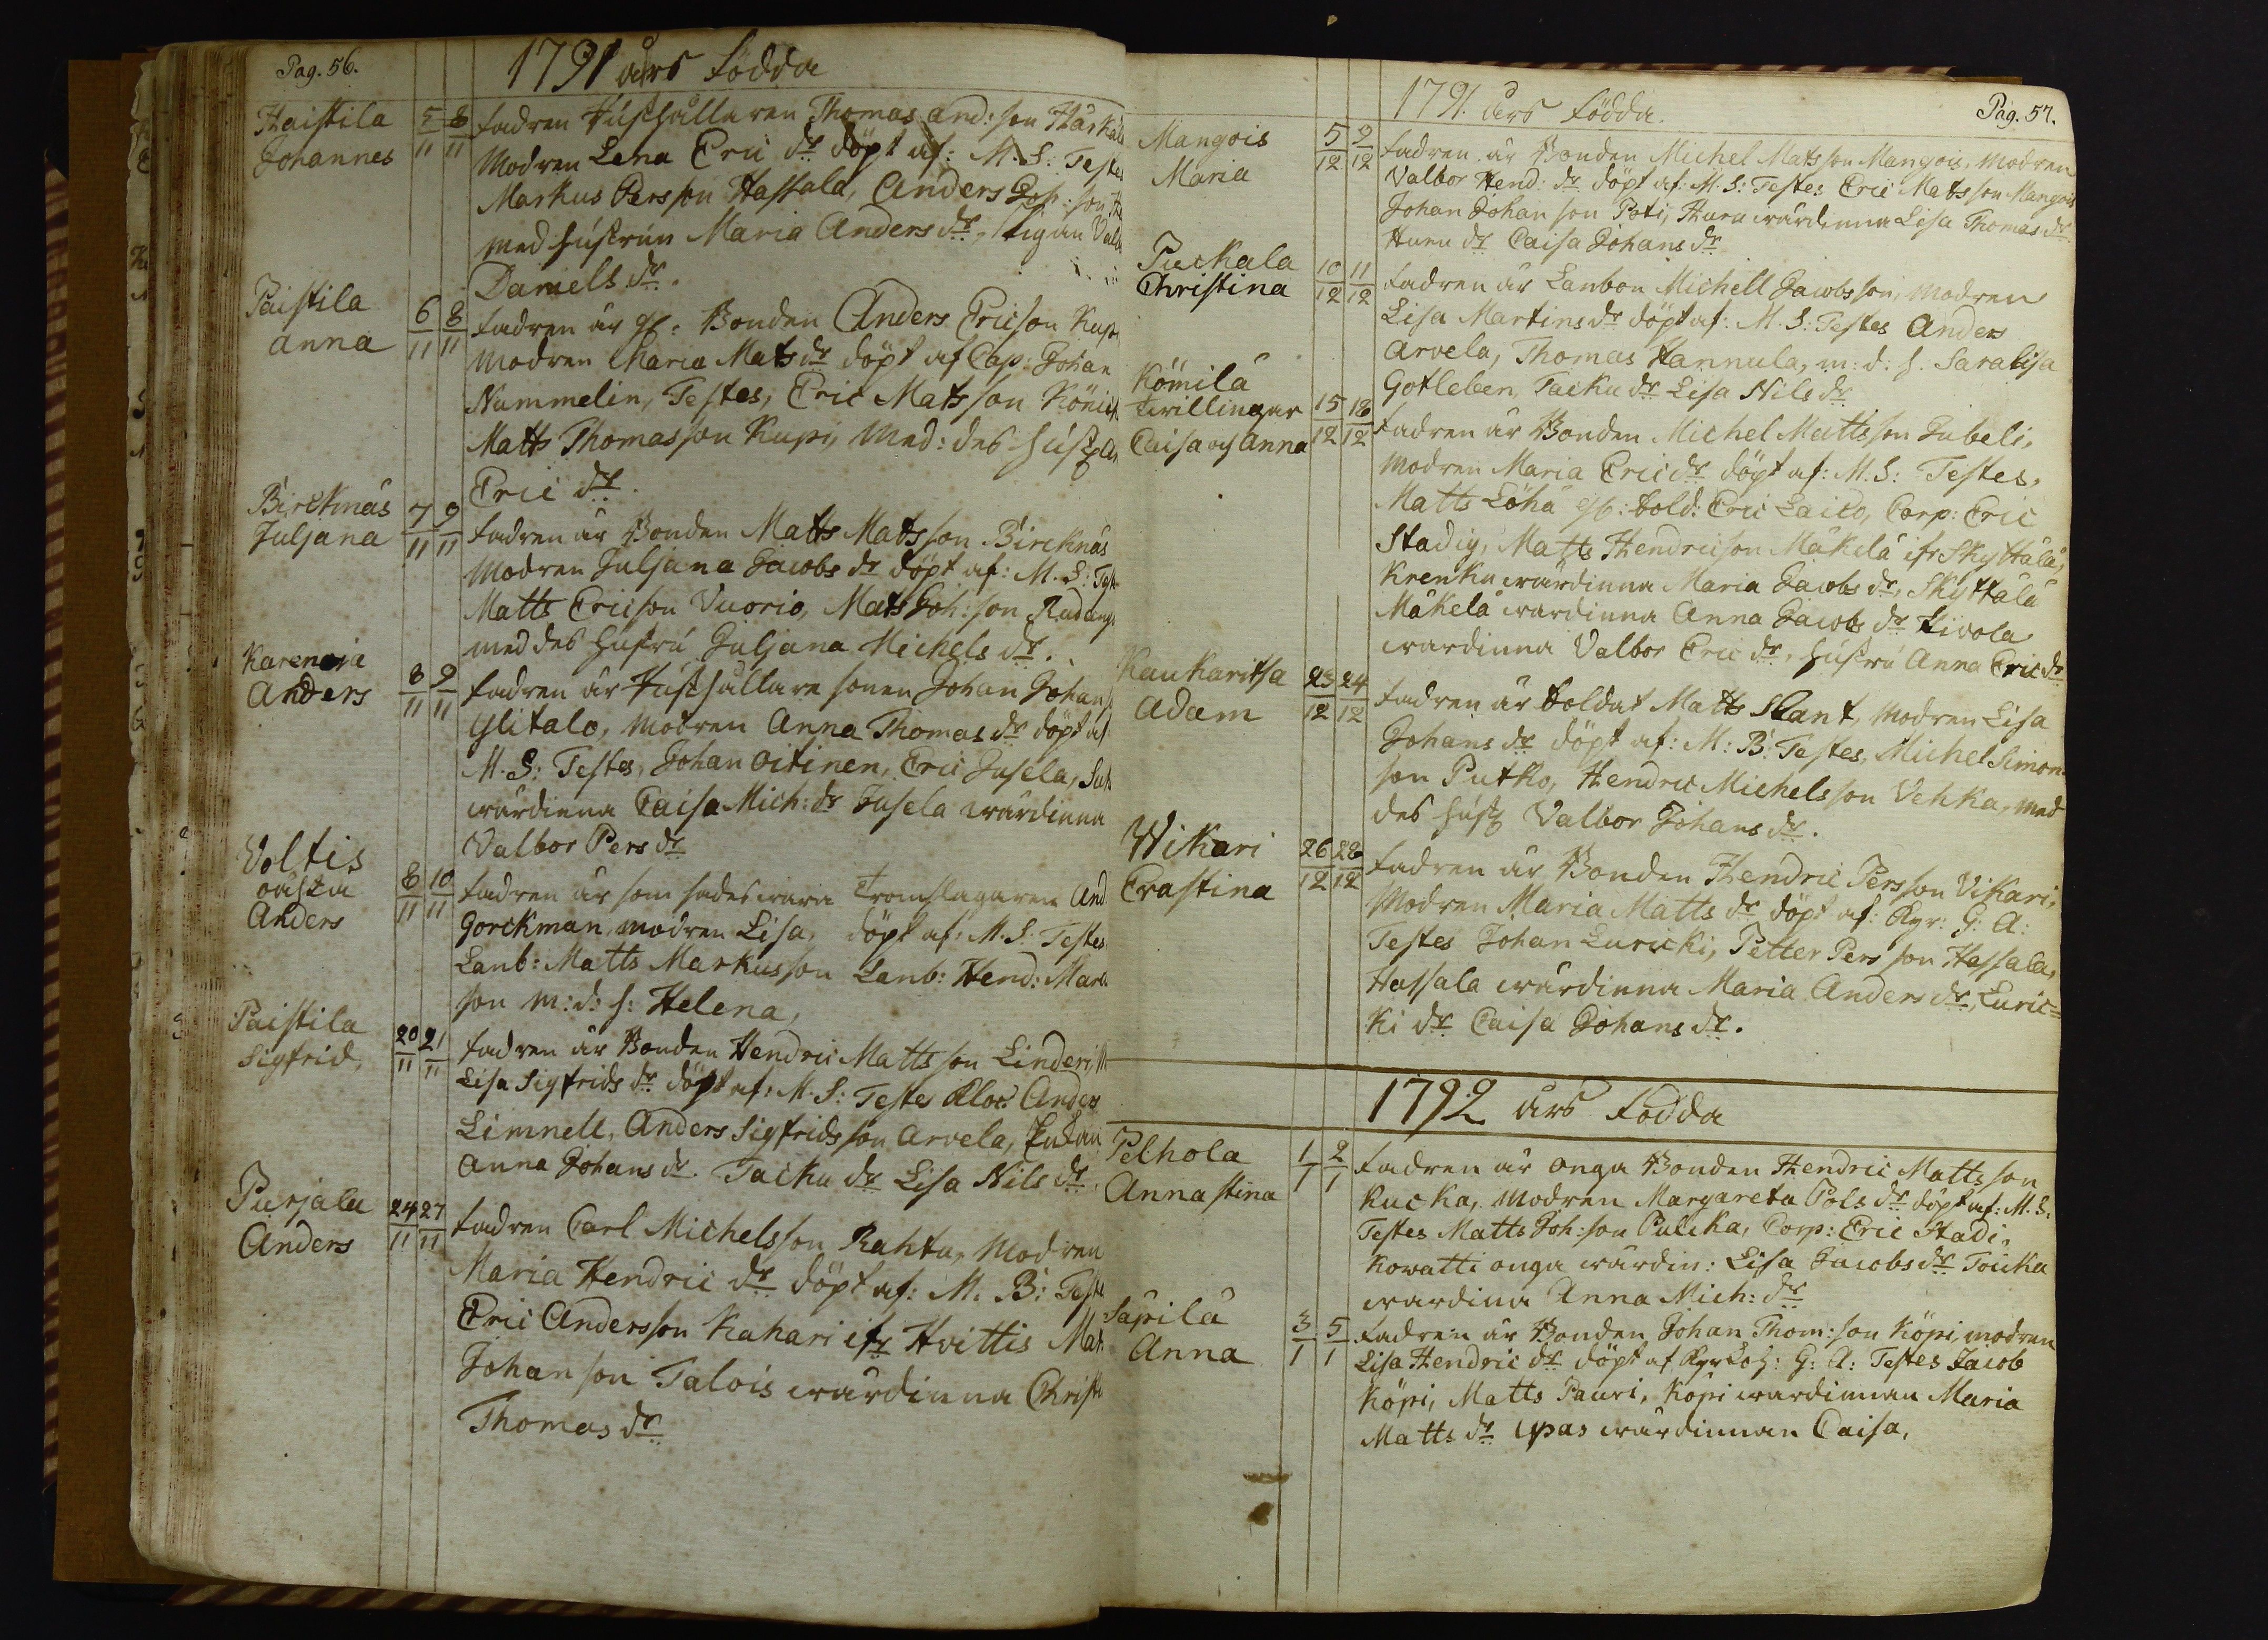 Pag. 56.
1791 års födda
Haistila
Johannes
5/11 8/11
fadren Hushållaren Thomas And: son
Modren Lena Eric dr döpt af: M. S: Testes
Markus Persson Hassala, Anders Joh: son
med hustrun Maria Anders dr, Pigan
Daniels dr.
Paistila
Anna
6/11 8/11
fadren är Bonden Anders Ericson
Modren Maria Mats dr döpt af Cap: Johan
Nummelin, Testes, Eric Matsson
Matts Thomasson Kupi, Med: des
Eric dr.
Bircknäs
Juljana
7/11 9/11
fadren är Bonden Matts Matsson Bircknäs
Modren Juljana Jacobs dr döpt af: M. S:
Matts Ericson Vuorio, Mats Joh: son
med des hustru Juljana Michels dr.
Karenoja
Anders
8/11 9/11
fadren är Hushållare sonen Johan
Glitalo, modren Anna Thomas dr döpt af
M. S: Testes, Johan Oitinen, Eric Jusela,
wärdinna Caisa Mich: dr Jusela wärdinna
Valbor Pers dr
Voltis
Anders
8/11 10/11
fadren är som sades wara Tromslagaren And
Gorckman, modren Lisa, döpt af: M. S. Testes
Lanb: Matts Markusson Lanb: Hend: Mark
son m: d: h: Helena,
Paistila
Sigfrid,
20/11 21/11
fadren är Bonden Hendric Mattsson Linderi,
Lisa Sigfrids dr döpt af: M. S: Testes Klock Anders
Limnell, Anders Sigfridsson Arvela,
Anna Johans dr. Tacku dr Lisa Nils dr
Purjala
Anders
24/11 27/11
fadren Carl Michelsson Rahtu, Modren
Maria Hendric dr döpt af: M. B: Teste
Eric Andersson Kahari ifr Hvittis
Johan son Talois wärdinna
Thomas dr
1791. års födda.
Pag. 57.
Mangois
Maria
5/12 9/12
fadren är Bonden Michel Matsson Mangois, Modren
Valbor Hend: dr döpt af: M. S: Testes Eric Matsson Mangois
Johan Johan son Poti, Huru wärdinna Lisa Thomas dr
Huru dr Caisa Johans dr
Puckala
Christina
10/12 11/12
fadren är Lanbon Michell Jacobsson, Modren
Lisa Martins dr döpt af: M. S: Testes Anders
Arvela, Thomas Hannula, m: d: h. Saralisa
Gotleben, Tacku dr Lisa Nils dr
Kömilä
Twillingar
Caisa och Anna
15/12 18/12
fadren är Bonden Michel Mattsson Jubeli,
Modren Maria Eric dr döpt af: M. S: Testes,
Matts Löhä sold: Eric Laiko, Corp: Eric
Stadig, Matts Hendricson Mäkelä ifr Skyttälä,
Krenku wärdinna Maria Jacobs dr, Skyttälä
Mäkelä wärdinna Anna Jacobs dr Hivola
wärdinna Valbor Eric dr, hustru Anna Eric dr
Kaukaritsa
Adam
23/12 24/12
fadren är Soldat Matts Slant, Modren Lisa
Johans dr döpt af: M: B: Testes, Michel Simon
son Putko, Hendric Michelsson Vehka, med
des hust Valbor Johans dr.
Wikari
Crastina
26/12 28/12
fadren är Bonden Hendric Persson Vikari,
Modren Maria Matts dr döpt af: Kyr: G: A:
Testes Johan Luricki, Petter Persson Hassala,
Hassala wärdinna Maria Anders dr, Luric=
ki dr Caisa Johans dr.
1792 års födda
Pelhola
Anna stina
1/1 2/1
fadren är onga Bonden Hendric Matts son
Kucka, Modren Margareta Pols dr döpt af: M. S.
Testes Matts Joh: son Pulcka, Corp: Eric Stadi,
Kowatti onga wärdin: Lisa Jacobs dr Toucka
wardina Anna Mich: dr
Säpilä
Anna
3/1 5/1
fadren är Bonden Johan Thom: son Köpi, modren
Lisa Hendric dr döpt af Kyrkoh: G: A: Testes Jacob
Köpi, Matts Pauri, Köpi wärdinnan Maria
Matts dr Upas wärdinnan Caisa.